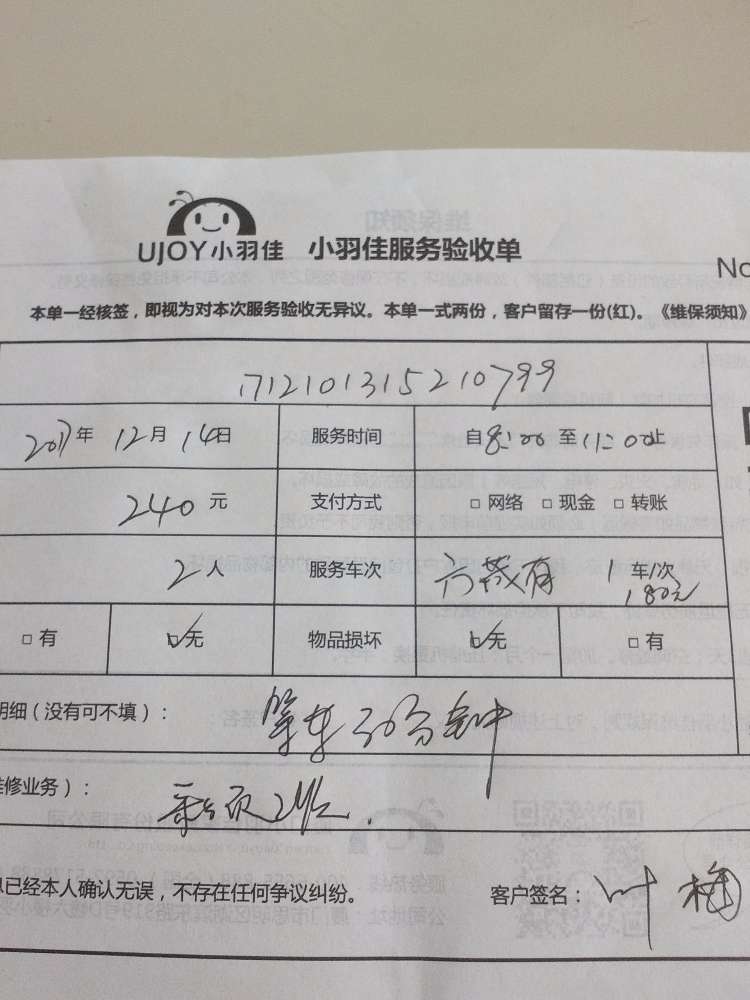 UJOY小羽佳 小羽佳服务验收单
No
本单一经核签，即视为对本次服务验收无异议。本单一式两份，客户留存一份(红)。《维保须知》
1712101315210799
2017年 12月 14日 服务时间 自8:00 至11:00止
240元 支付方式 □网络 □现金 □转账
2人 服务车次 1 车/次
180元
□有 □无 物品损坏 □无 □有
明细（没有可不填）： 等车30分钟
维修业务）：
已经本人确认无误，不存在任何争议纠纷。 客户签名：叶梅